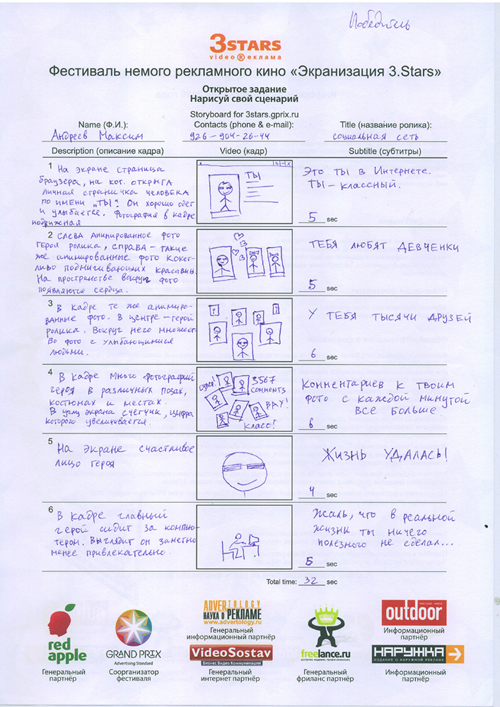 Победитель
3STARS
videoреклама
Фестиваль немого рекламного кино «Экранизация 3.Stars»
Открытое задание
Нарисуй свой сценарий
Storyboard for 3stars.gprix.ru
Name (Ф.И.): Contacts (phone & e-mail): Title (название ролика):
Андреев Максим 926-904-26-44 социальная сеть
Description (описание кадра) Video (кадр) Subtitle (субтитры)
1 На экране страница
браузера, на кот. открыта
личная страничка человека
по имени "ТЫ". Он хорошо одет
и улыбается. Фотография в кадре
подвижная
ТЫ
Это ты в Интернете.
ТЫ - классный.
5 sec
2 Слева анимированное фото
героя ролика, справа - такие
же анимированные фото кокет-
ливо подмигивающих красавиц.
На пространстве вокруг фото
появляются сердца.
ТЕБЯ ЛЮБЯТ ДЕВЧЕНКИ
5 sec
3 В кадре те же анимиро-
ванные фото. В центре - герой
ролика. Вокруг него множест-
во фото с улыбающимися
людьми.
У ТЕБЯ ТЫСЯЧИ ДРУЗЕЙ
6 sec
4 В кадре много фотографий
героя в различных позах,
костюмах и местах.
В углу экрана счетчик, цифра
которого увеличивается.
3567
comments
ВАУ!
КЛАСС!
Комментариев к твоим
фото с каждой минутой
все больше
6 sec
5 На экране счастливое
лицо героя
ЖИЗНЬ УДАЛАСЬ!
4 sec
6 В кадре главный
герой сидит за компью-
тером. Выглядит он заметно
менее привлекательно.
Жаль, что в реальной
жизни ты ничего
полезного не сделал...
5 sec
Total time: 32 sec
red
apple
Генеральный
партнёр
GRAND PRIX
Advertising Standard
Соорганизатор
фестиваля
ADVERTOLOGY
НАУКА О РЕКЛАМЕ
www.advertology.ru
Генеральный
информационный партнёр
VideoSostav
Генеральный
интернет партнёр
freelance.ru
Генеральный
фриланс партнёр
outdoor
Информационный
партнёр
НАРУЖКА
ИЗДАНИЕ О НАРУЖНОЙ РЕКЛАМЕ
Информационный
партнёр